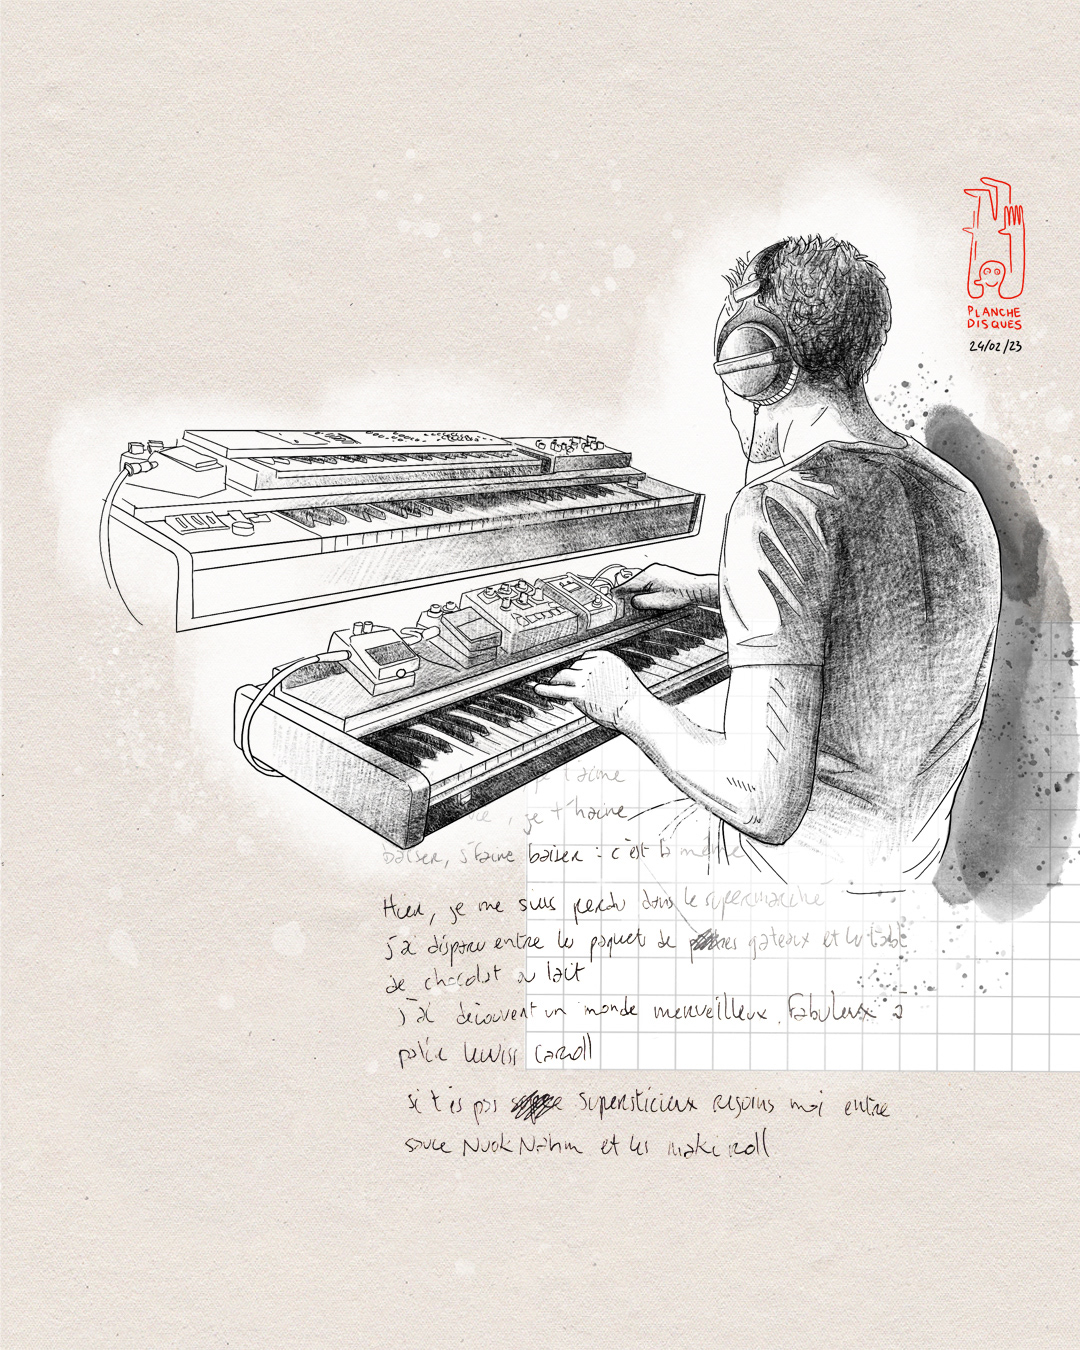 PLANCHE
DISQUES
24/02/23
l'aime
, je t'haine
baiser, j'haine baiser : c'est la même
Hier, je me suis perdu dans le supermarché
j'ai disparu entre les paquets de gateaux et les tabl
de chocolat au lait
j'ai découvert un monde merveilleux. Fabuleux à
palir Lewiss Caroll
si t'es pas supersticieux rejoins moi entre
sauce Nuok Nahm et les maki roll